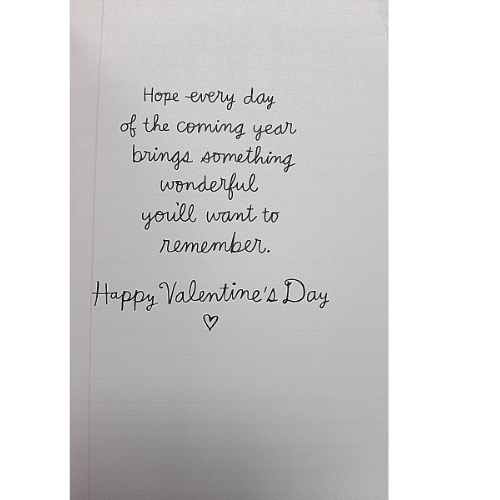 Hope every day
of the coming year
brings something
wonderful
you'll want to
remember.
Happy Valentine's Day
♡